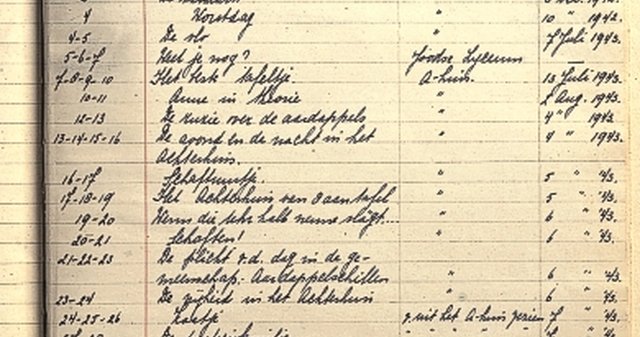 4 Kerstdag " 10 " 1942.
4-5 De vlo " 7 Juli 1943.
5-6-7 Weet je nog? Joodse Lyceum
7-8-9-10 Het beste tafeltje. A-huis. 13 Juli 1943.
10-11 Anne in theorie " 2 Aug. 1943.
12-13 De ruzie over de aardappels " 4 " 1943.
13-14-15-16 De avond en de nacht in het " 4 " 1943.
Achterhuis.
16-17 Schaftuurtje. " 5 " '43.
17-18-19 Het Achterhuis van 8 aan tafel " 5 " '43.
19-20 Wenn die Uhr halb neune slägt.... " 6 " '43.
20-21 Schoften! " 6 " '43.
21-22-23 De plicht v.d. dag in de ge-
meenschap: Aardappelschillen " 6 " '43.
23-24 De vrijheid in het Achterhuis " 6 " '43.
24-25-26 Kaatje uit het A-huis gezien 7 " '43.